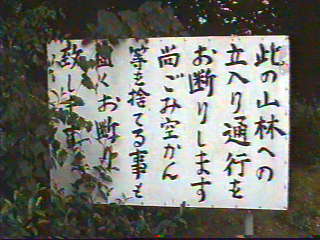 此の山林への
立入り通行を
お断りします
尚ごみ空かん
等を捨てる事も
固くお断り
致します